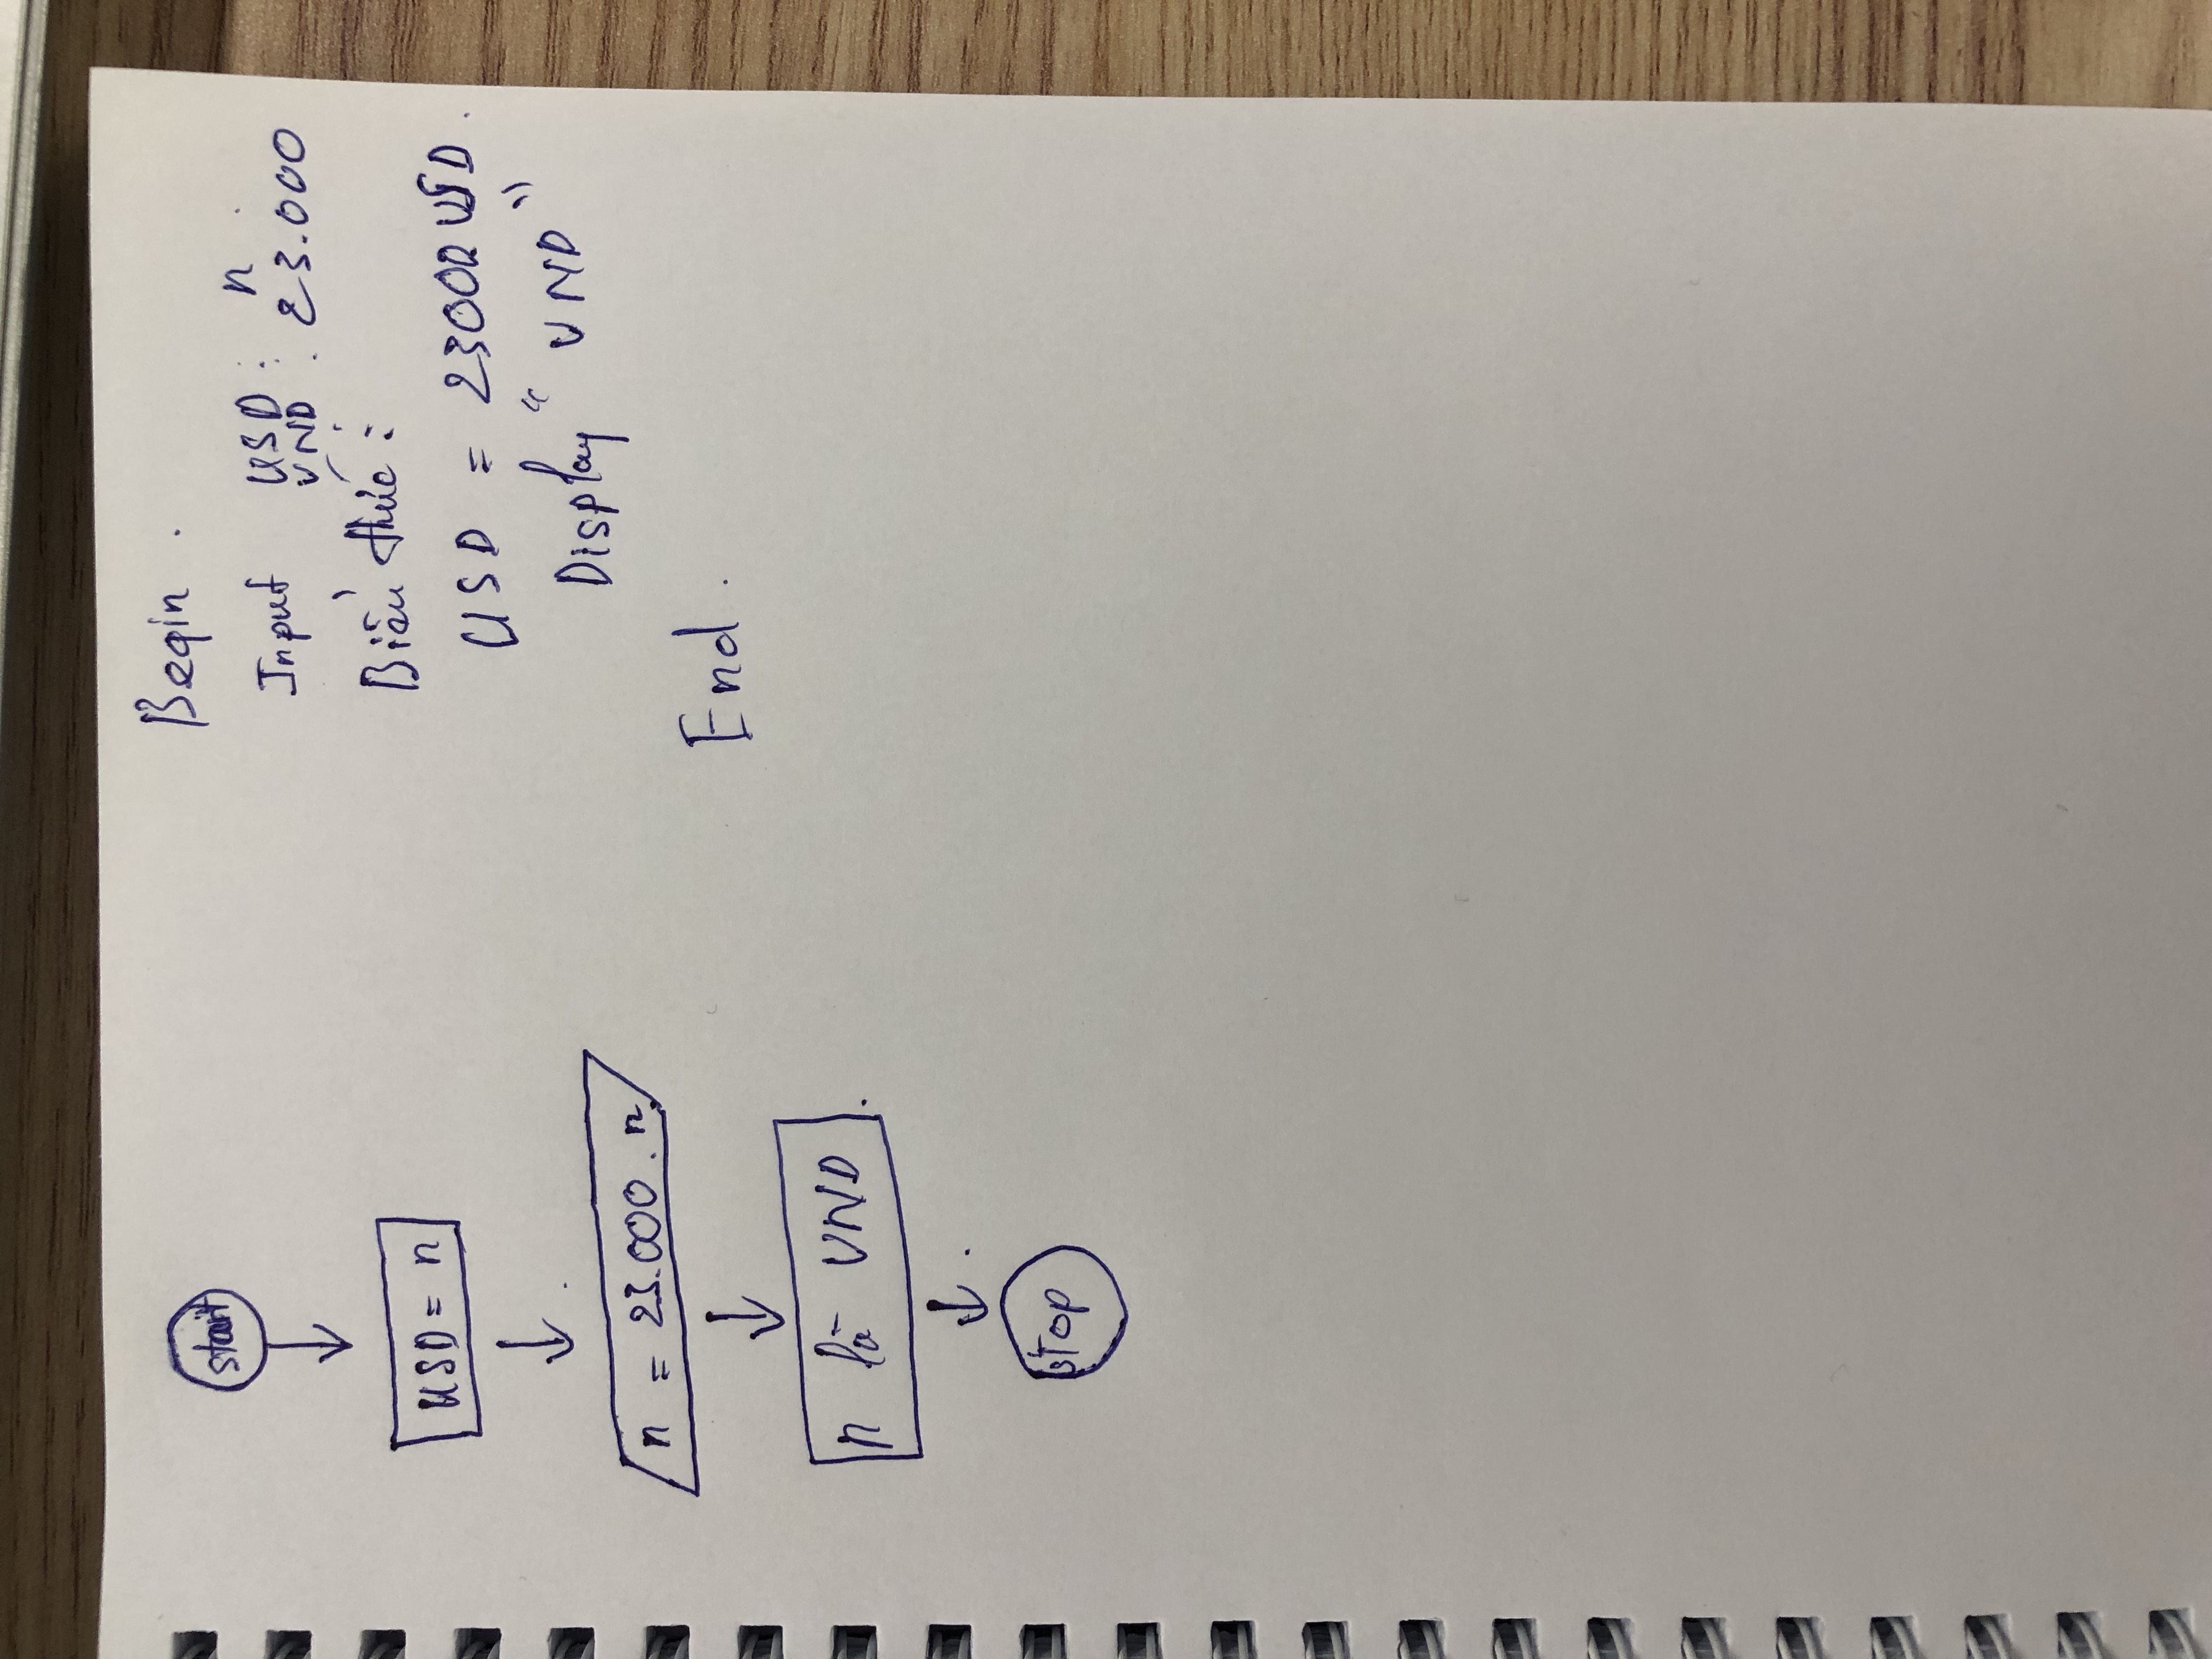 start
USD = n
n = 23.000 . n
n là VND
stop
Begin .
Input USD : n
VND : 23.000
Biểu thức :
USD = 23000 USD .
Display " VND "
End .